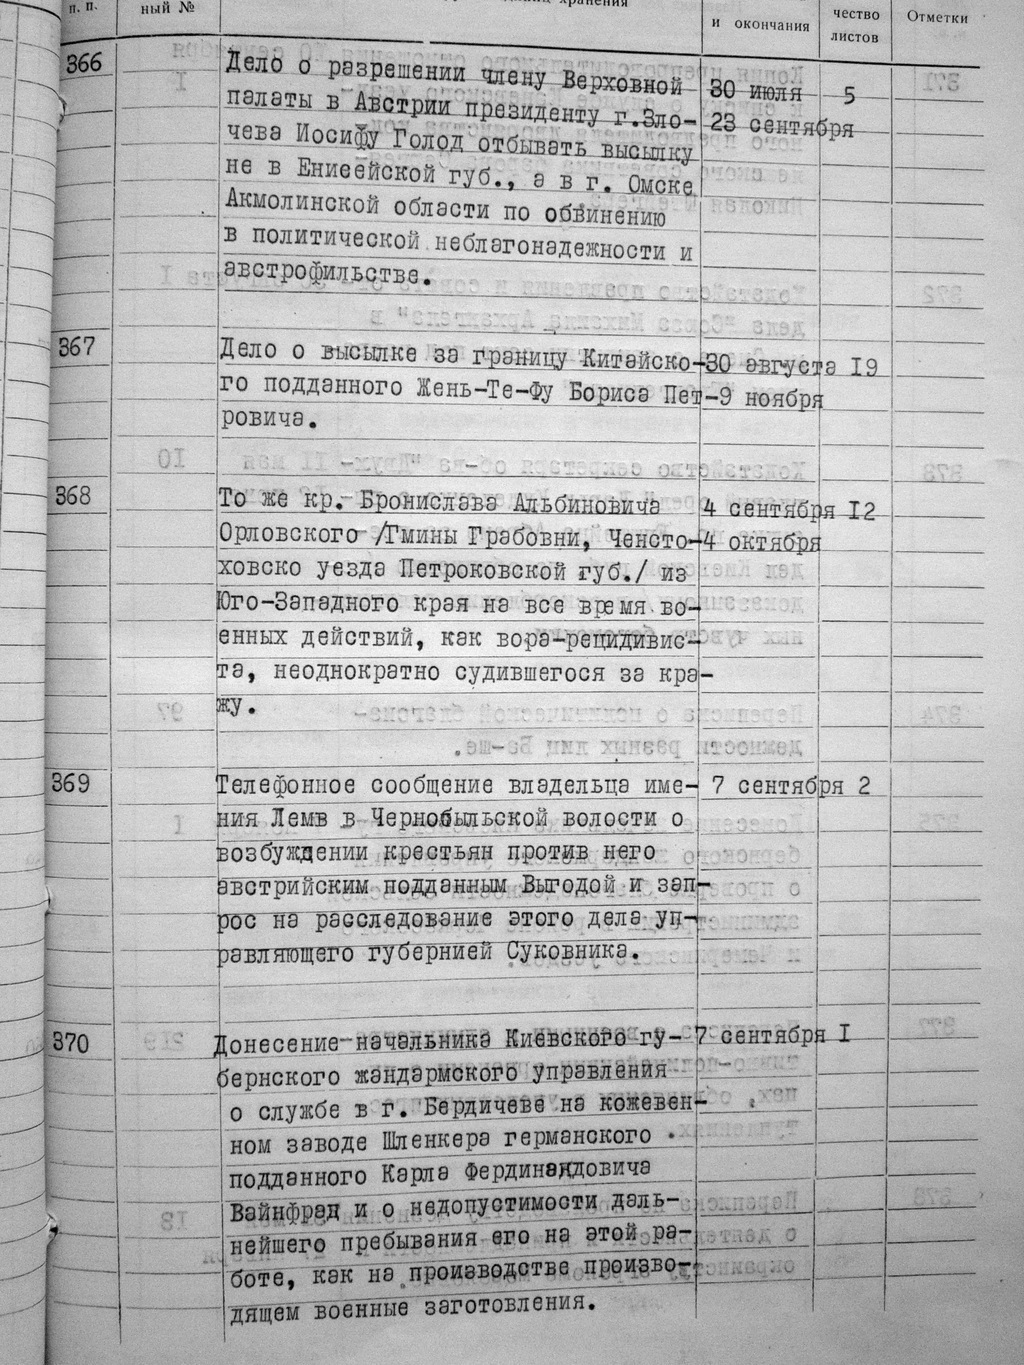 п. п. ный № хранения и окончания чество листов Отметки
366 Дело о разрешении члену Верховной 30 июля 5
палаты в Австрии президенту г.Зло- 23 сентября
чева Иосифу Голод отбывать высылку
не в Ениеейской губ., а в г. Омске
Акмолинской области по обвинению
в политической неблагонадежности и
австрофильстве.
367 Дело о высылке за границу Китайско- 30 августа 19
го подданного Жень-Те-Фу Бориса Пет- 9 ноября
ровича.
368 То же кр. Бронислава Альбиновича 4 сентября 12
Орловского /Гмины Грабовни, Ченсто- 4 октября
ховско уезда Петроковской губ./ из
Юго-Западного края на все время во-
енных действий, как вора-рецидивис-
та, неоднократно судившегося за кра-
жу.
369 Телефонное сообщение владельца име- 7 сентября 2
ния Лемв в Чернобыльской волости о
возбуждении крестьян против него
австрийским подданным Выгодой и зап-
рос на расследование этого дела уп-
равляющего губернией Суковника.
370 Донесение начальника Киевского гу- 7 сентября I
бернского жандармского управления
о службе в г. Бердичеве на кожевен-
ном заводе Шленкера германского
подданного Карла Фердинандовича
Вайнфрад и о недопустимости даль-
нейшего пребывания его на этой ра-
боте, как на производстве произво-
дящем военные заготовления.